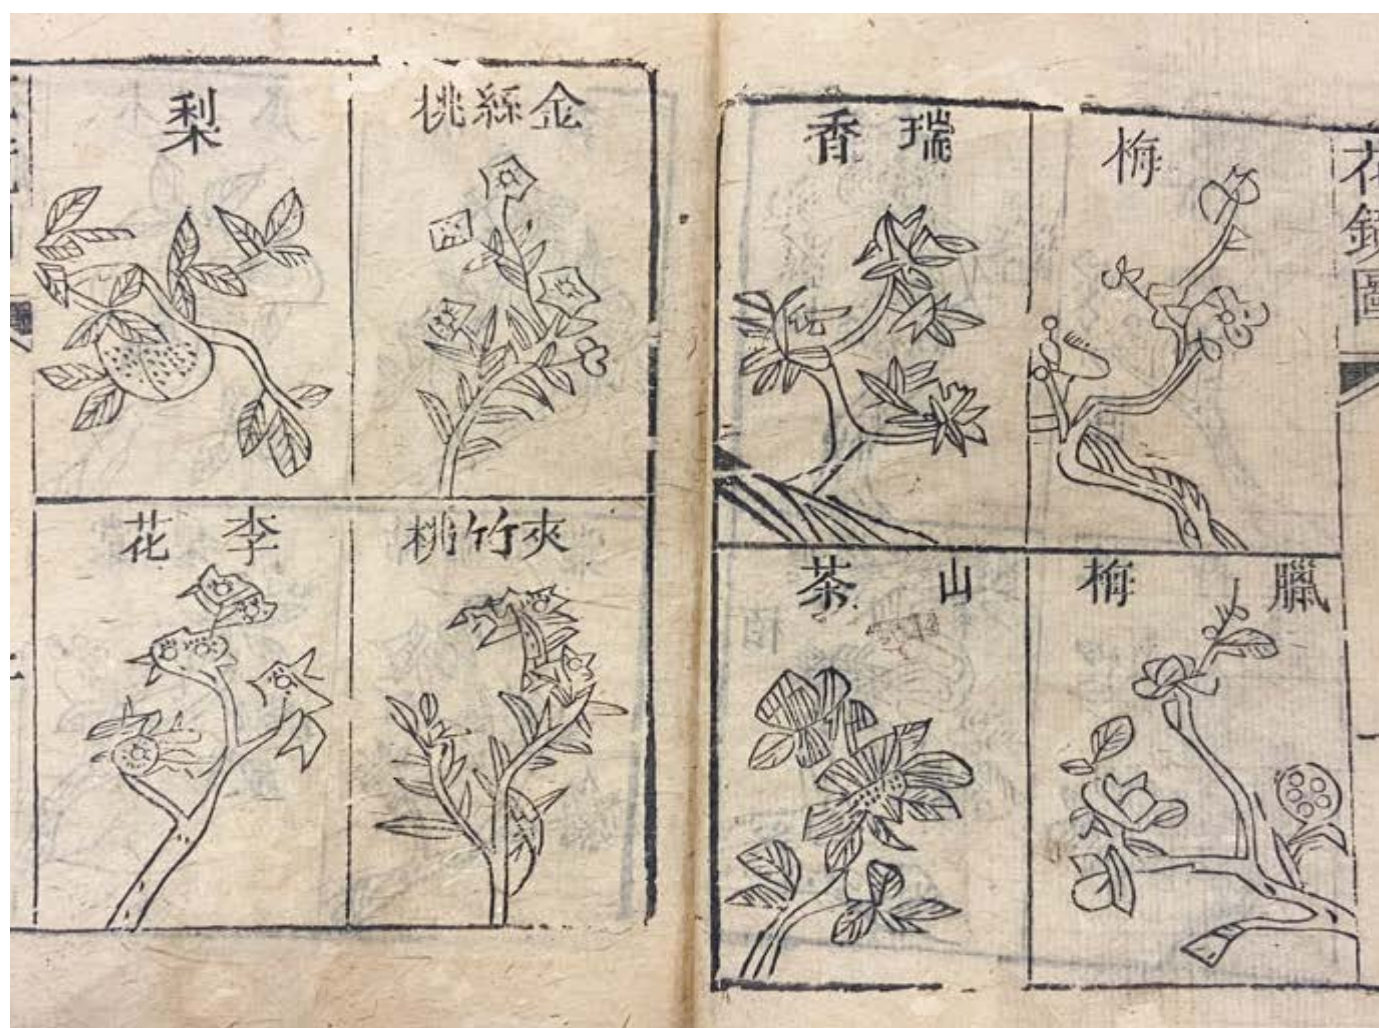 花鏡圖
一
梅
瑞香
臘梅
山茶
金絲桃
梨
夾竹桃
李花